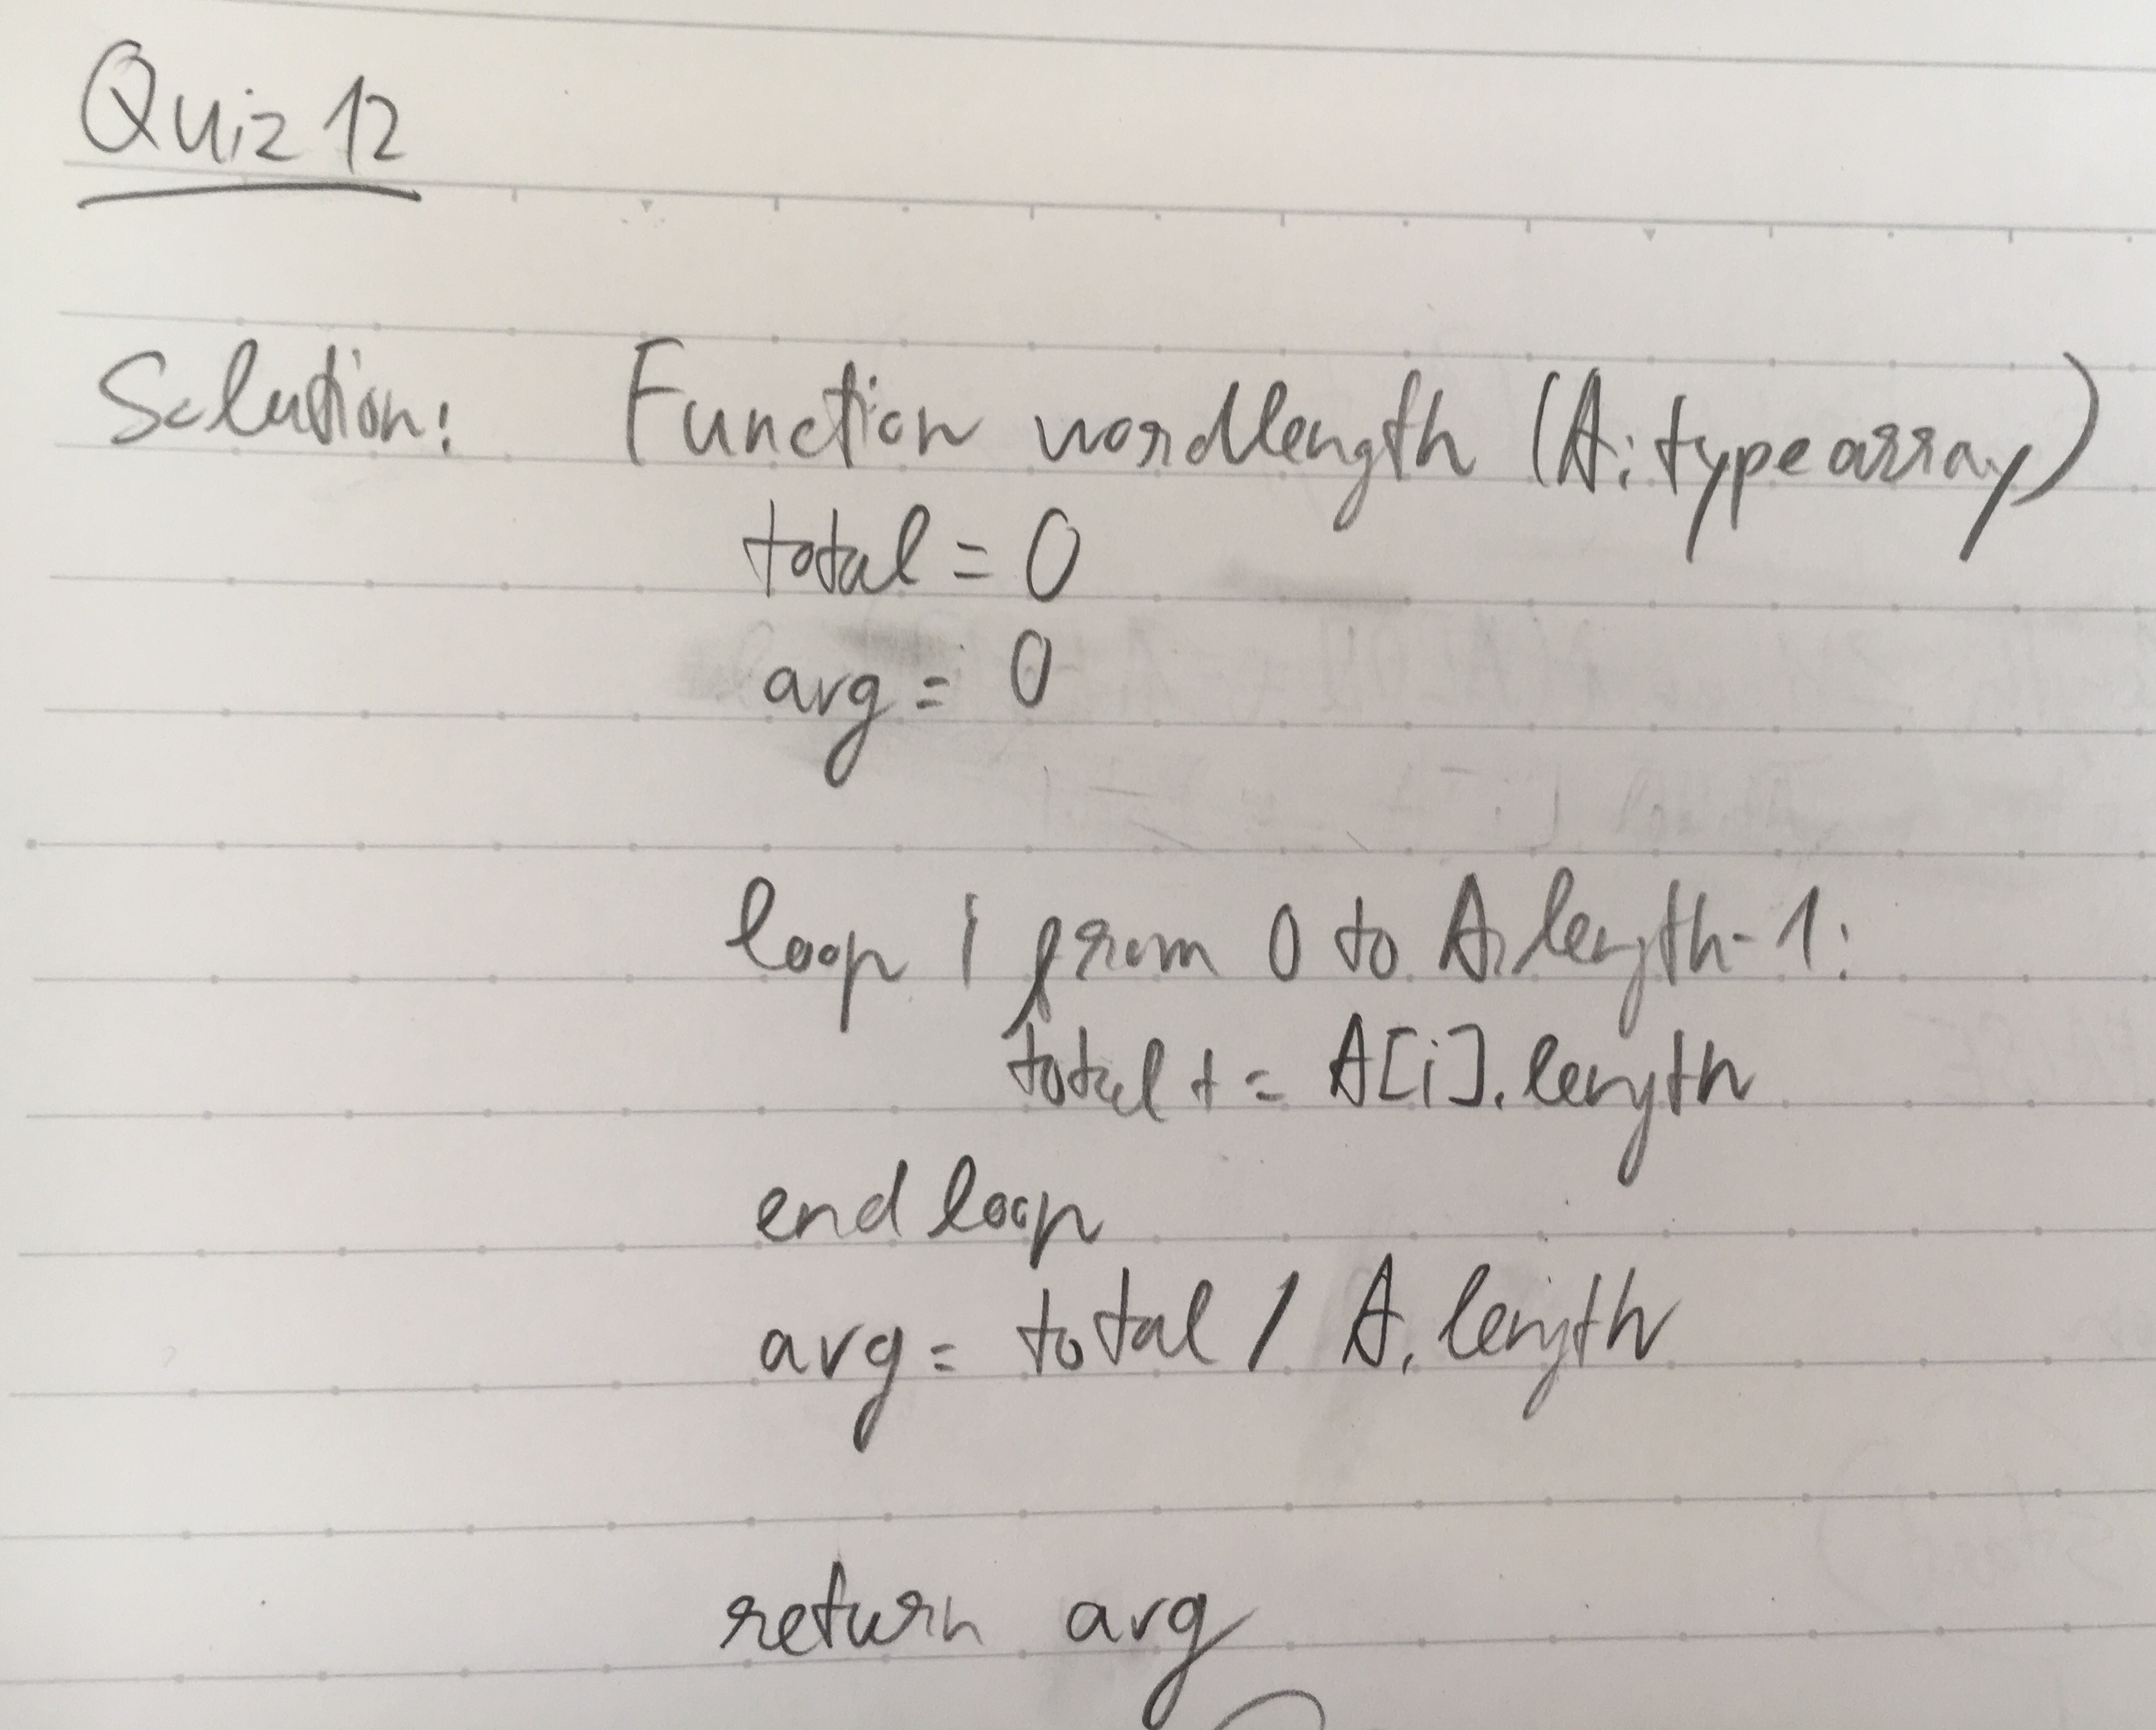 Quiz 12
Solution: Function wordlength (A: type array)
total = 0
avg = 0
loop i from 0 to A.length-1:
total += A[i].length
end loop
avg = total / A.length
return avg